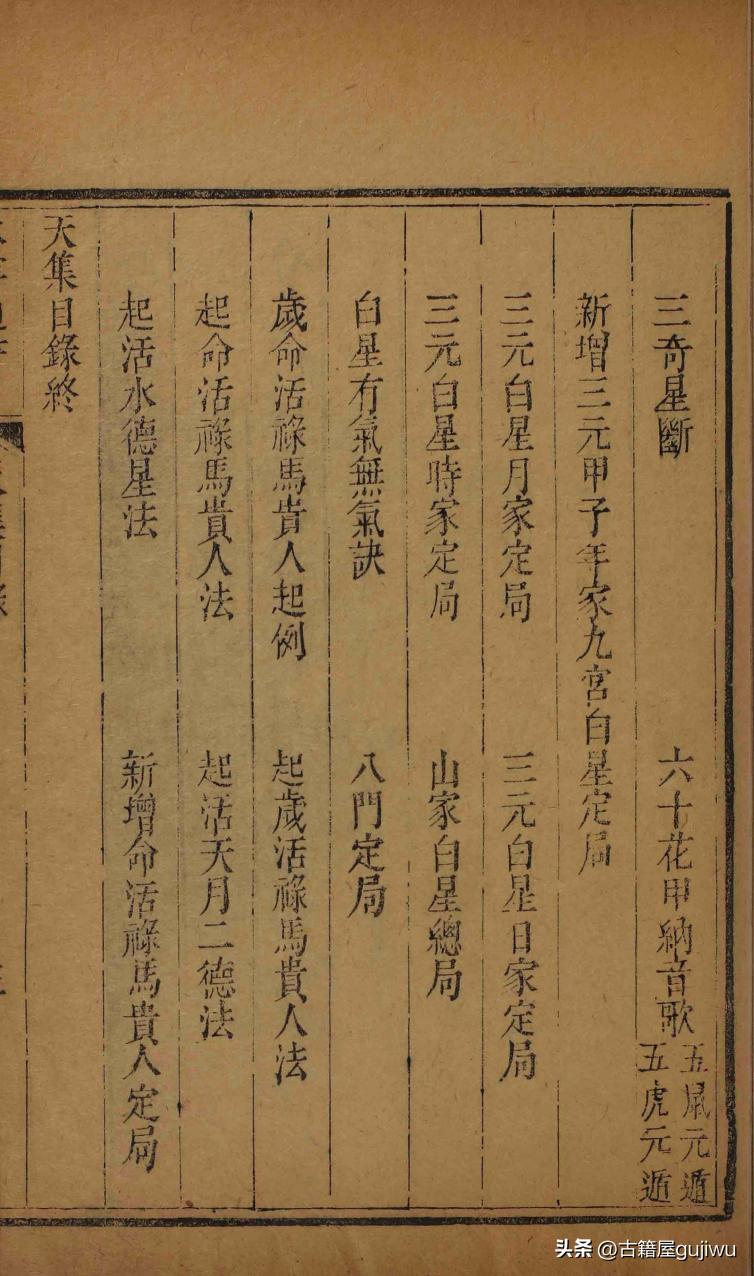 三奇星斷　六十花甲納音歌　五鼠元遁　五虎元遁
新增三元甲子年家九宮白星定局
三元白星月家定局　三元白星日家定局
三元白星時家定局　山家白星總局
白星有氣無氣訣　八門定局
歲命活祿馬貴人起例　起歲活祿馬貴人法
起命活祿馬貴人法　起活天月二德法
起活水德星法　新增命活祿馬貴人定局
天集目錄終
头条 @古籍屋gujiwu